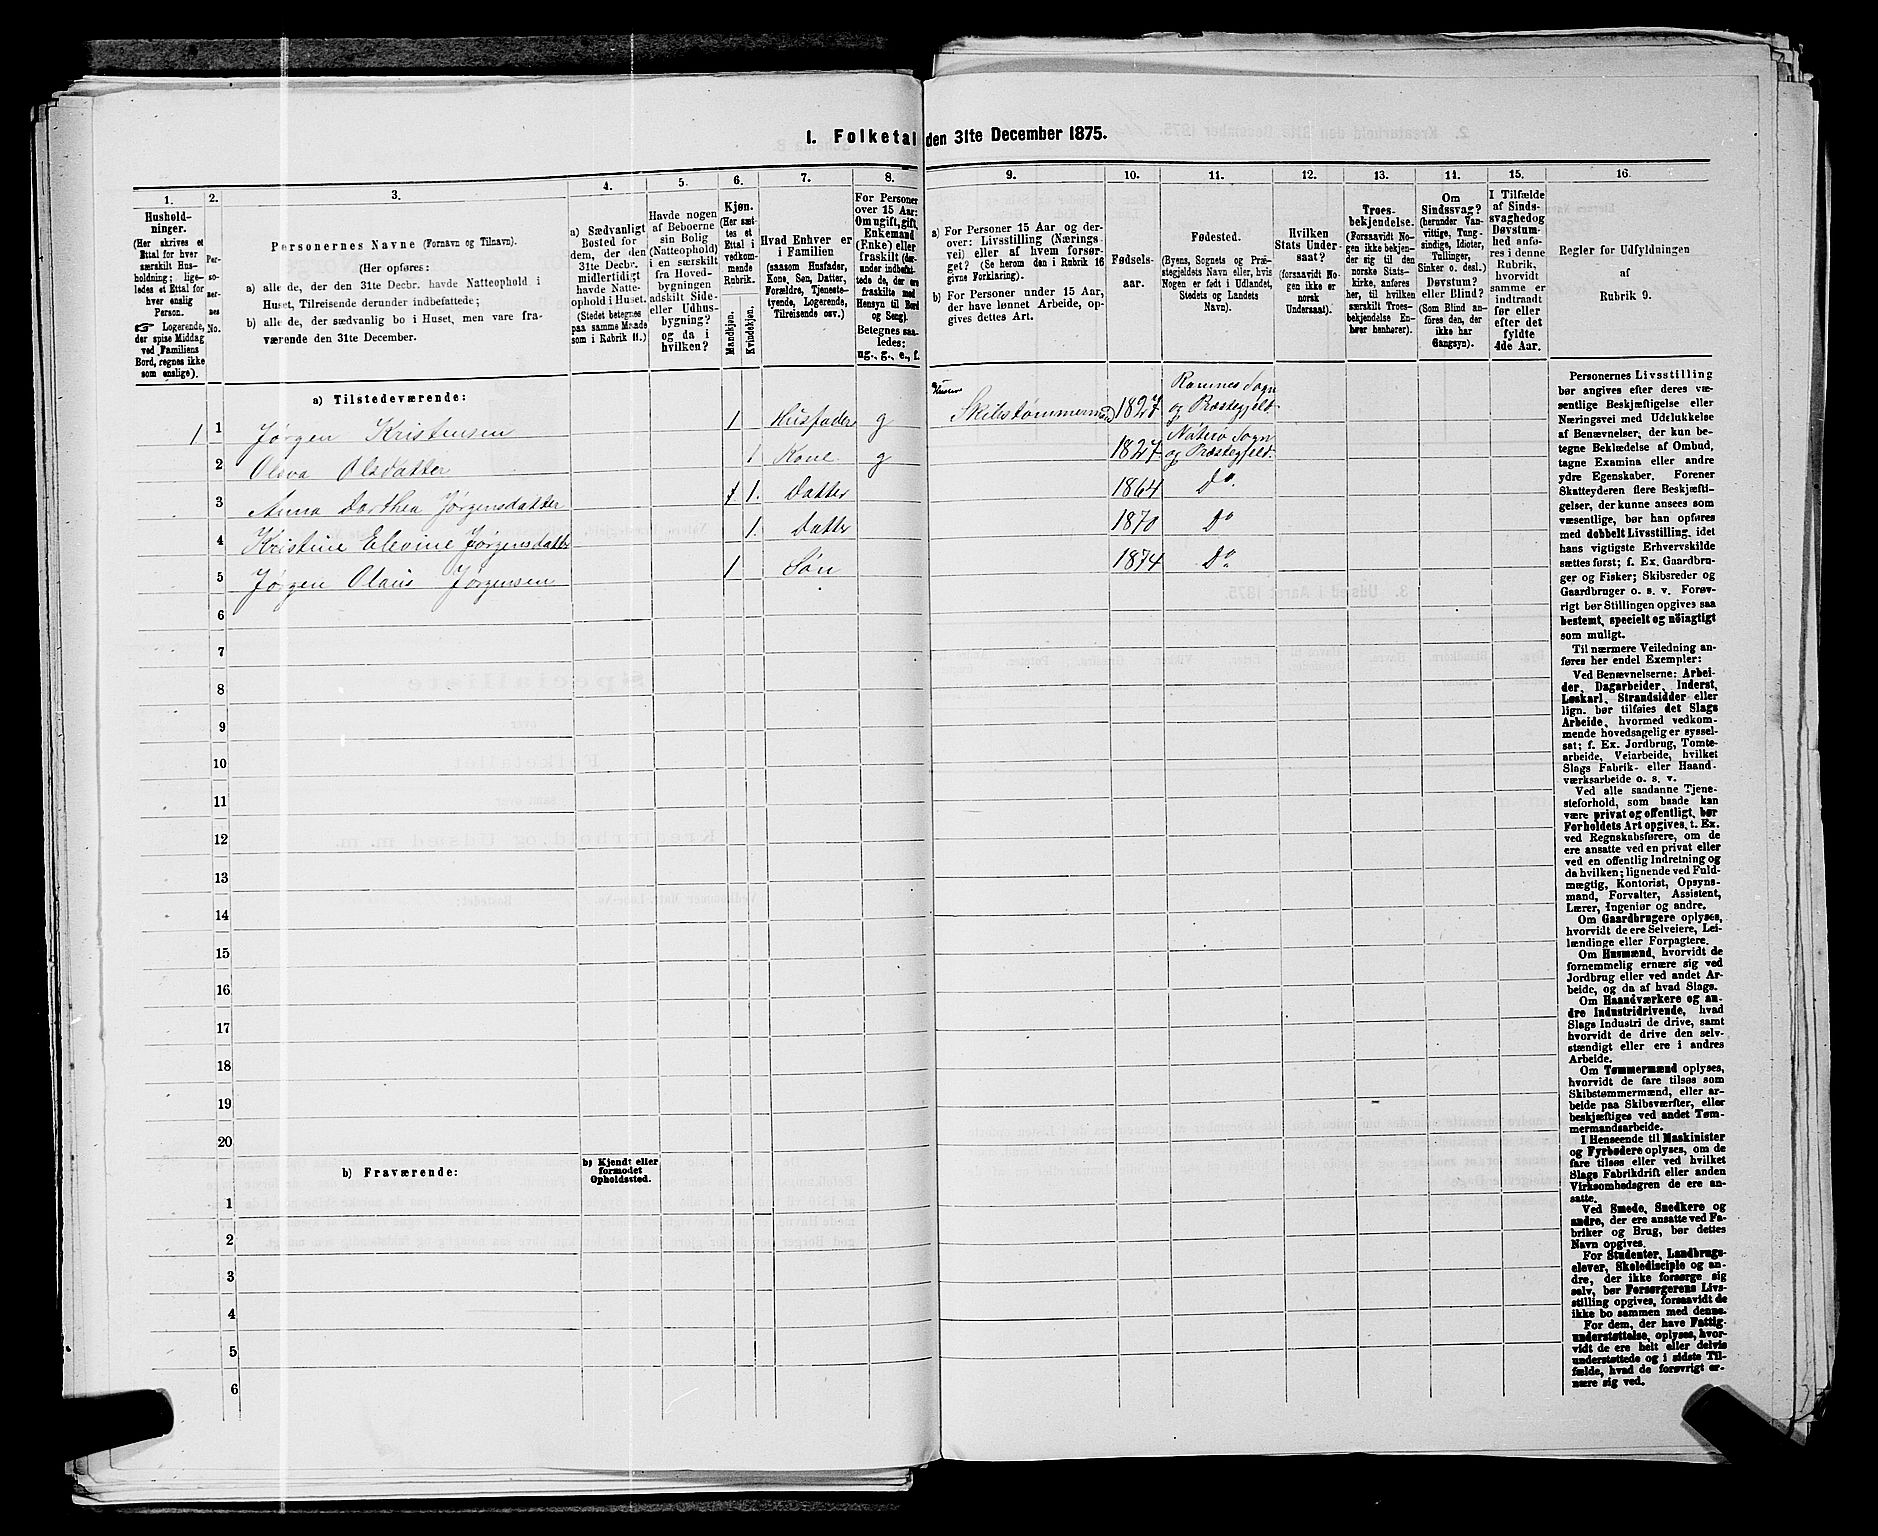 I. Folketal den 31te December 1875.
1.
Hushold-
ninger.
(Her skrives et
Ettal for hver
særskilt Hus-
holdning; lige-
ledes et Ettal for
hver enslig
Person.
☞ Logerende,
der spise Middag
ved Familiens
Bord, regnes ikke
som enslige).
2.
Per-
so-
ner-
nes
No.
3.
Personernes Navne (Fornavn og Tilnavn).
(Her opføres:
a) alle de, der den 31te Decbr. havde Natteophold i
Huset, Tilreisende derunder indbefattede;
b) alle de, der sædvanlig bo i Huset, men vare fra-
værende den 31te December.
4.
a) Sædvanligt
Bosted for
dem, der den
31te Decbr.
midlertidigt
havde Natte-
ophold i Huset.
(Stedet betegnes
paa samme Maade
som i Rubrik 11.)
5.
Havde nogen
af Beboerne
sin Bolig
(Natteophold)
i en særskilt
fra Hoved-
bygningen
adskilt Side-
eller Udhus-
bygning?
og da i
hvilken?
6.
Kjøn.
(Her sæt-
tes et
Ettal i
vedkom-
mende
Rubrik.
Mandkjøn.
Kvindekjøn.
7.
Hvad Enhver er
i Familien
(saasom Husfader,
Kone, Søn, Datter,
Forældre, Tjeneste-
tyende, Logerende,
Tilreisende osv.)
8.
For Personer
over 15 Aar:
Om ugift, gift,
Enkemand
(Enke) eller
fraskilt (der-
under indbefat-
tede de, der ere
fraskilte med
Hensyn til Bord
og Seng).
Betegnes saa-
ledes:
ug., g., e., f.
9.
a) For Personer 15 Aar og der-
over: Livsstilling (Nærings-
vei) eller af hvem forsør-
get? (Se herom den i Rubrik 16
givne Forklaring).
b) For Personer under 15 Aar,
der have lønnet Arbeide, op-
gives dettes Art.
10.
Fødsels-
aar.
11.
Fødested.
(Byens, Sognets og Præ-
stegjeldets Navn eller, hvis
Nogen er født i Udlandet,
Stedets og Landets
Navn).
12.
Hvilken
Stats Under-
saat?
(forsaavidt No-
gen ikke er
norsk
Undersaat).
13.
Troes-
bekjendelse.
(Forsaavidt No-
gen ikke bekjen-
der sig til den
norske Stats-
kirke, anføres
her, til hvilken
særskilt Troes-
bekjendelse En-
hver henhører).
14.
Om
Sindssvag?
(herunder Van-
vittige, Tung-
sindige, Idioter,
Tullinger,
Sinker o. desl.)
Døvstum?
eller Blind?
(Som Blind an-
føres den, der
ikke har
Gangsyn).
15.
I Tilfælde
af Sinds-
svaghed og
Døvstum-
hed anfø-
res i denne
Rubrik,
hvorvidt
samme er
indtraadt
før eller
efter det
fyldte
4de Aar.
16.
Regler for Udfyldningen
af
Rubrik 9.
a) Tilstedeværende:
1 1 Jørgen Kristensen 1 Husfader g Skibstømmermand 1827 Ramnes Sogn og Præstegjeld.
2 Olava Olsdatter 1. Kone g 1827 Nøterø Sogn og Præstegjeld.
3 Anna Dorthea Jørgensdatter 1. Datter 1864 Do.
4 Kristine Elevine Jørgensdatter 1. Datter 1870 Do
5 Jørgen Olaus Jørgensen 1 Søn 1874 Do.
6
7
8
9
10
11
12
13
14
15
16
17
18
19
20
b) Fraværende:
b) Kjendt eller
formodet
Opholdssted.
1
2
3
4
5
6
Personernes Livsstilling
bør angives efter deres væ-
sentlige Beskjæftigelse eller
Næringsvei med Udelukkelse
af Benævnelser, der kun be-
tegne Beklædelse af Ombud,
tagne Examina eller andre
ydre Egenskaber. Forener
Skatteyderen flere Beskjæfti-
gelser, der kunne ansees som
væsentlige, bør han opføres
med dobbelt Livsstilling, idet
hans vigtigste Erhvervskilde
sættes først; f. Ex. Gaardbru-
ger og Fisker; Skibsreder og
Gaardbruger o. s. v. Forøv-
rigt bør Stillingen opgives saa
bestemt, specielt og nøiagtigt
som muligt.
Til nærmere Veiledning an-
føres her endel Exempler:
Ved Benævnelserne: Arbei-
der, Dagarbeider, Inderst,
Løskarl, Strandsidder eller
lign. bør tilføies det Slags
Arbeide, hvormed vedkom-
mende hovedsagelig er syssel-
sat; f. Ex. Jordbrug, Tomte-
arbeide, Veiarbeide, hvilket
Slags Fabrik- eller Haand-
værksarbeide o. s. v.
Ved alle saadanne Tjene-
steforhold, som baade kan
være privat og offentligt, bør
Forholdets Art opgives, t. Ex.
ved Regnskabsførere, om de
ere ansatte ved en privat eller
ved en offentlig Indretning og
da hvilken; lignende ved Fuld-
mægtig, Kontorist, Opsyns-
mand, Forvalter, Assistent,
Lærer, Ingeniør og andre.
Om Gaardbrugere oplyses,
hvorvidt de ere Selveiere, Lei-
lændinge eller Forpagtere.
Om Husmænd, hvorvidt de
fornemmelig ernære sig ved
Jordbrug eller ved andet Ar-
beide, og da af hvad Slags.
Om Haandværkere og an-
dre Industridrivende, hvad
Slags Industri de drive, samt
hvorvidt de drive den selv-
stændigt eller ere i andres
Arbeide.
Om Tømmermænd oplyses,
hvorvidt de fare tilsøs som
Skibstømmermænd, eller ar-
beide paa Skibsværfter, eller
beskjæftiges ved andet Tøm-
mermandsarbeide.
I Henseende til Maskinister
og Fyrbødere oplyses, om de
fare tilsøs eller ved hvilket
Slags Fabrikdrift eller anden
Virksomhedsgren de ere an-
satte.
Ved Smede, Snedkere og
andre, der ere ansatte ved Fa-
briker og Brug, bør dettes
Navn opgives.
For Studenter, Landbrugs-
elever, Skoledisciple og an-
dre, der ikke forsørge sig
selv, bør Forsørgerens Livs-
stilling opgives, forsaavidt de
ikke bo sammen med denne.
For dem, der have Fattig-
understøttelse, oplyses, hvor-
vidt de ere helt eller delvis
understøttede og i sidste Til-
fælde, hvad de forøvrigt er-
nære sig ved.